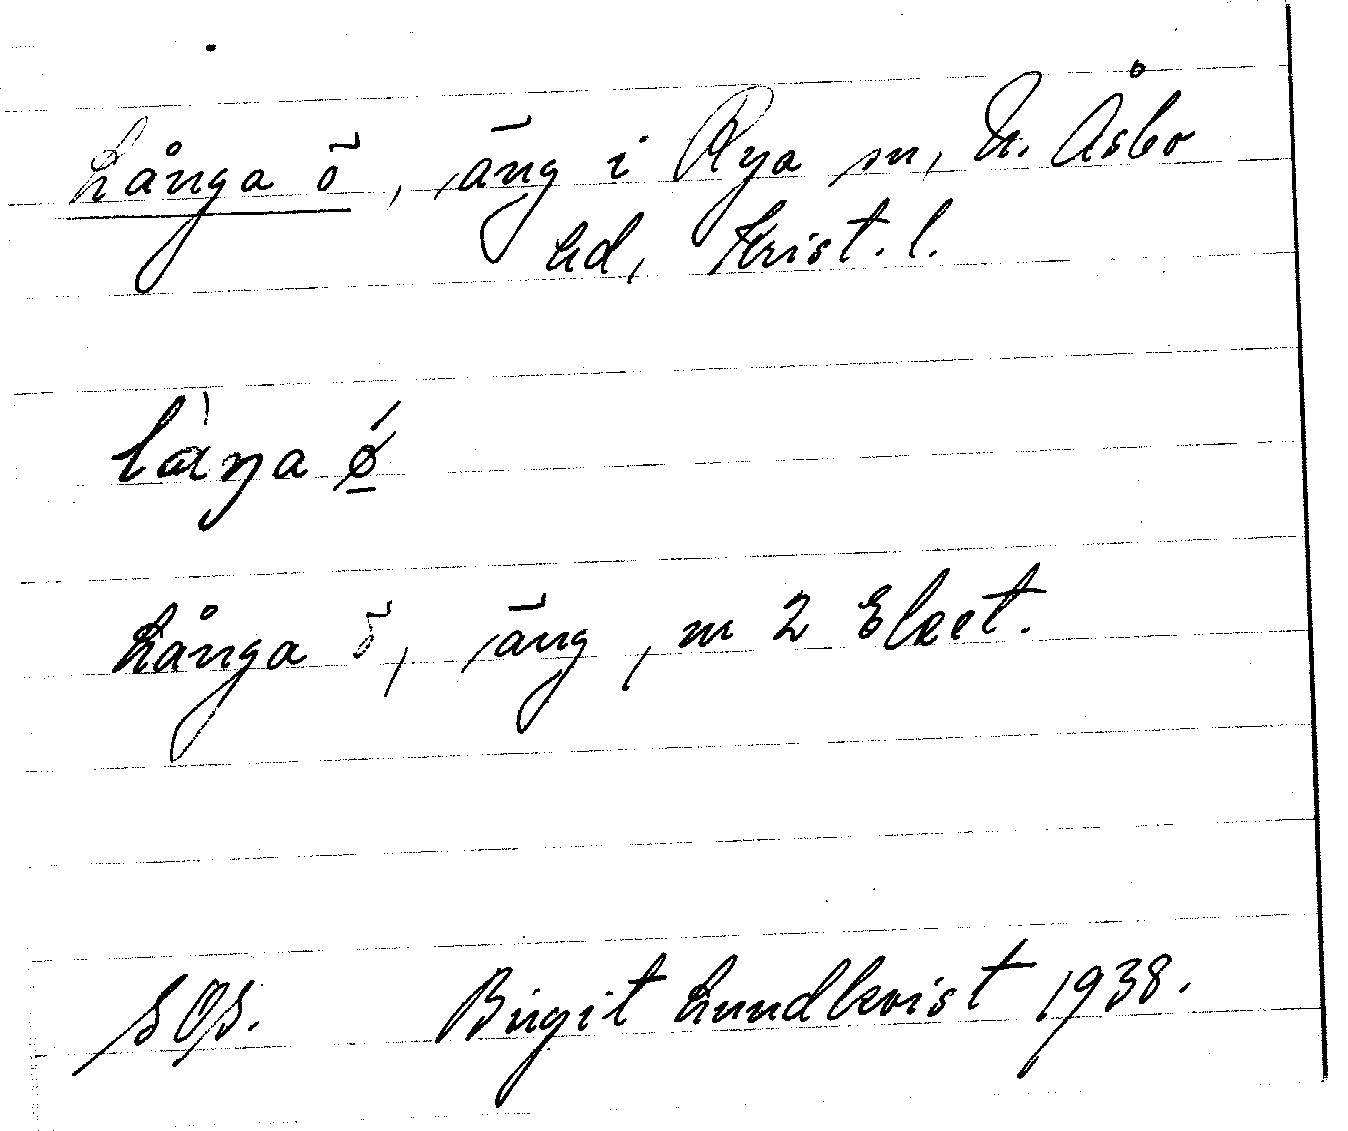 Långa ö, äng i Rya sn, N. Åsbo
hd, Krist. l.
låŋa ǿ
Långa ö, äng, m 2 Eket.
SOI. Birgit Lundkvist 1938.